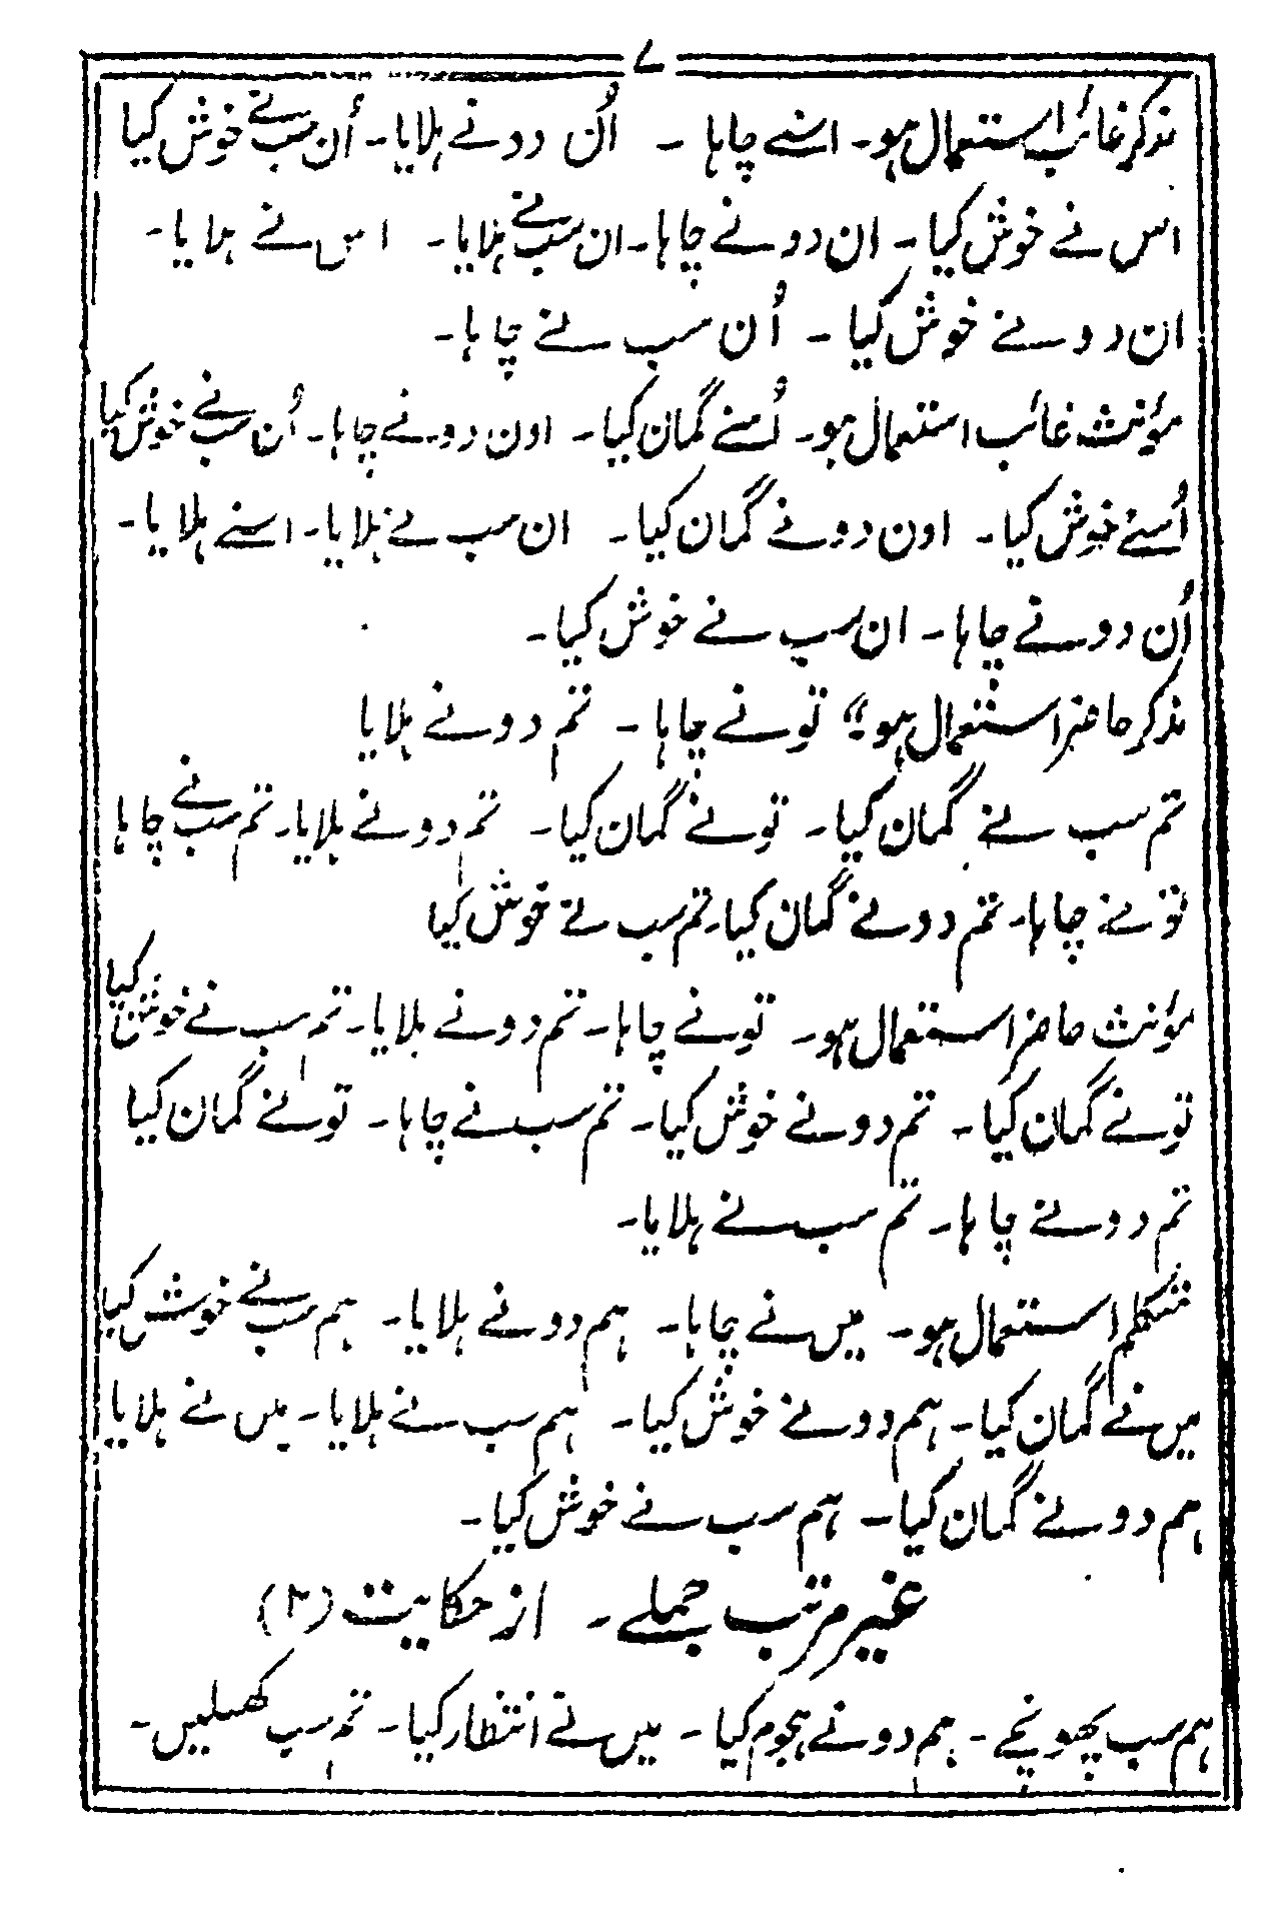 ۷
مذکر غائب استعمال ہو۔ اسنے چاہا ۔ اُن دو نے ہلایا۔ اُن سب نے خوش کیا
اس نے خوش کیا۔ ان دو نے چاہا۔ ان سب نے ہلایا۔ اس نے ہلایا۔
ان دو نے خوش کیا ۔ اُن سب نے چاہا۔
مؤنث غائب استعمال ہو۔ اُسنے گمان کیا۔ اون دو نے چاہا۔ اُن سب نے خوش کیا
اُسنے خوش کیا۔ اون دو نے گمان کیا۔ ان سب نے ہلایا۔ اسنے ہلایا۔
اُن دو نے چاہا۔ ان سب نے خوش کیا۔
مذکر حاضر استعمال ہو۔ تو نے چاہا ۔ تم دو نے ہلایا
تم سب نے گمان کیا۔ تو نے گمان کیا۔ تم دو نے ہلایا۔ تم سب نے چاہا
تو نے چاہا۔ تم دو نے گمان کیا۔ تم سب نے خوش کیا
مؤنث حاضر استعمال ہو۔ تو نے چاہا۔ تم دو نے ہلایا۔ تم سب نے خوش کیا
تو نے گمان کیا۔ تم دو نے خوش کیا۔ تم سب نے چاہا۔ تو نے گمان کیا
تم دو نے چاہا۔ تم سب نے ہلایا۔
متکلم استعمال ہو۔ میں نے چاہا۔ ہم دو نے ہلایا۔ ہم سب نے خوش کیا
میں نے گمان کیا۔ ہم دو نے خوش کیا۔ ہم سب نے ہلایا۔ میں نے ہلایا
ہم دو نے گمان کیا۔ ہم سب نے خوش کیا۔
غیر مرتب جملے۔ از حکایت (۲)
ہم سب پھونچے۔ ہم دو نے ہجوم کیا ۔ میں نے انتظار کیا۔ تم سب کھیلیں۔